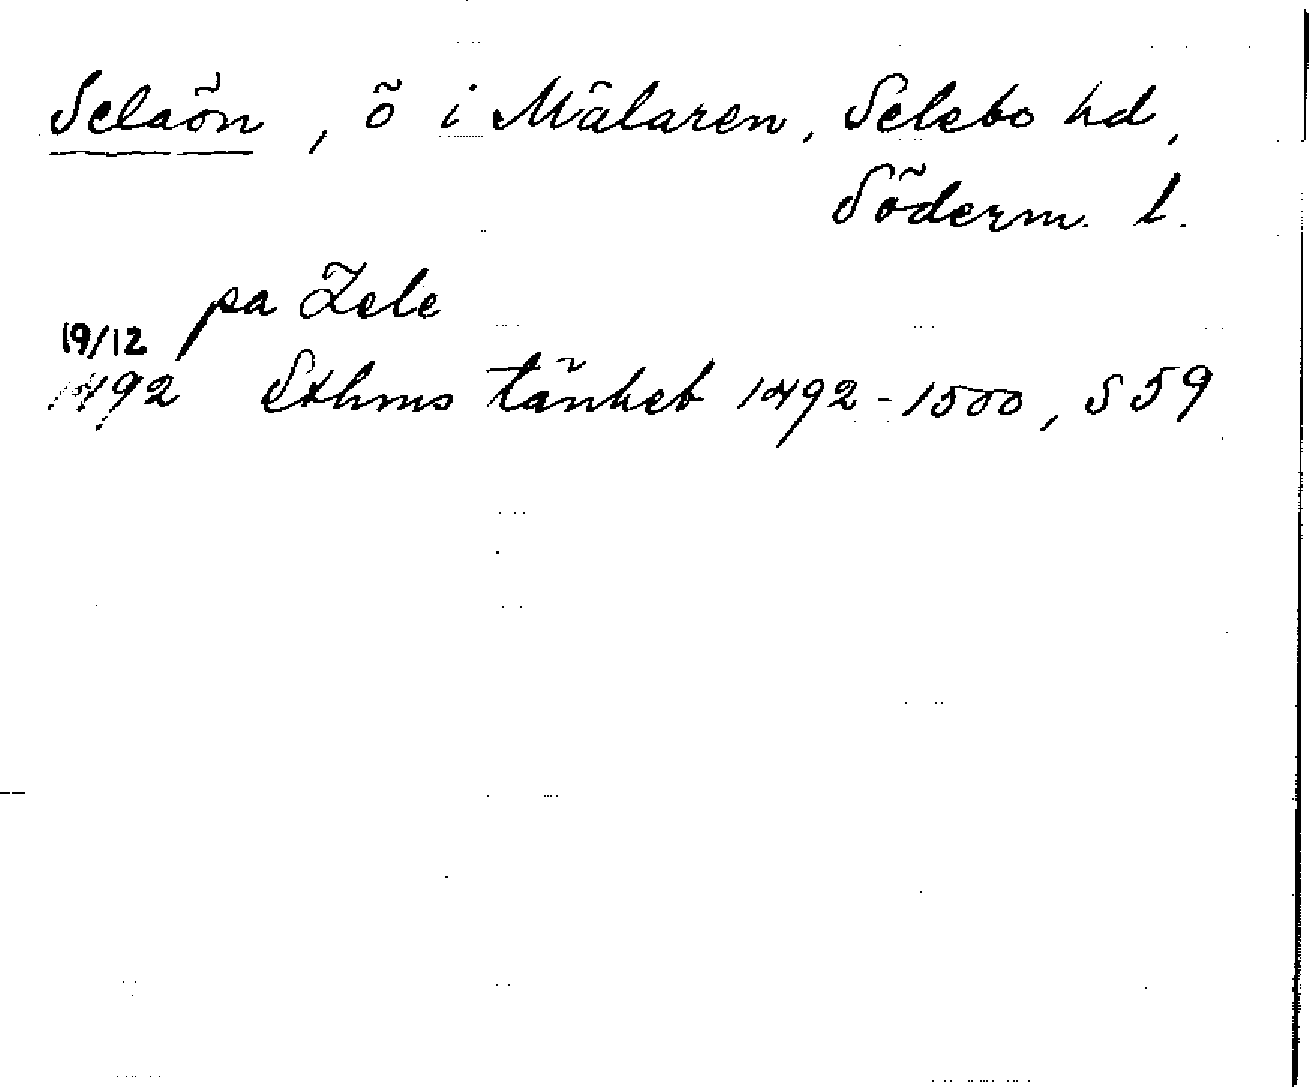 Selaön, ö i Mälaren, Selebo hd,
Söderm. l.
pa Zele
19/12
1492 Sthms tänkeb 1492-1500, s 59